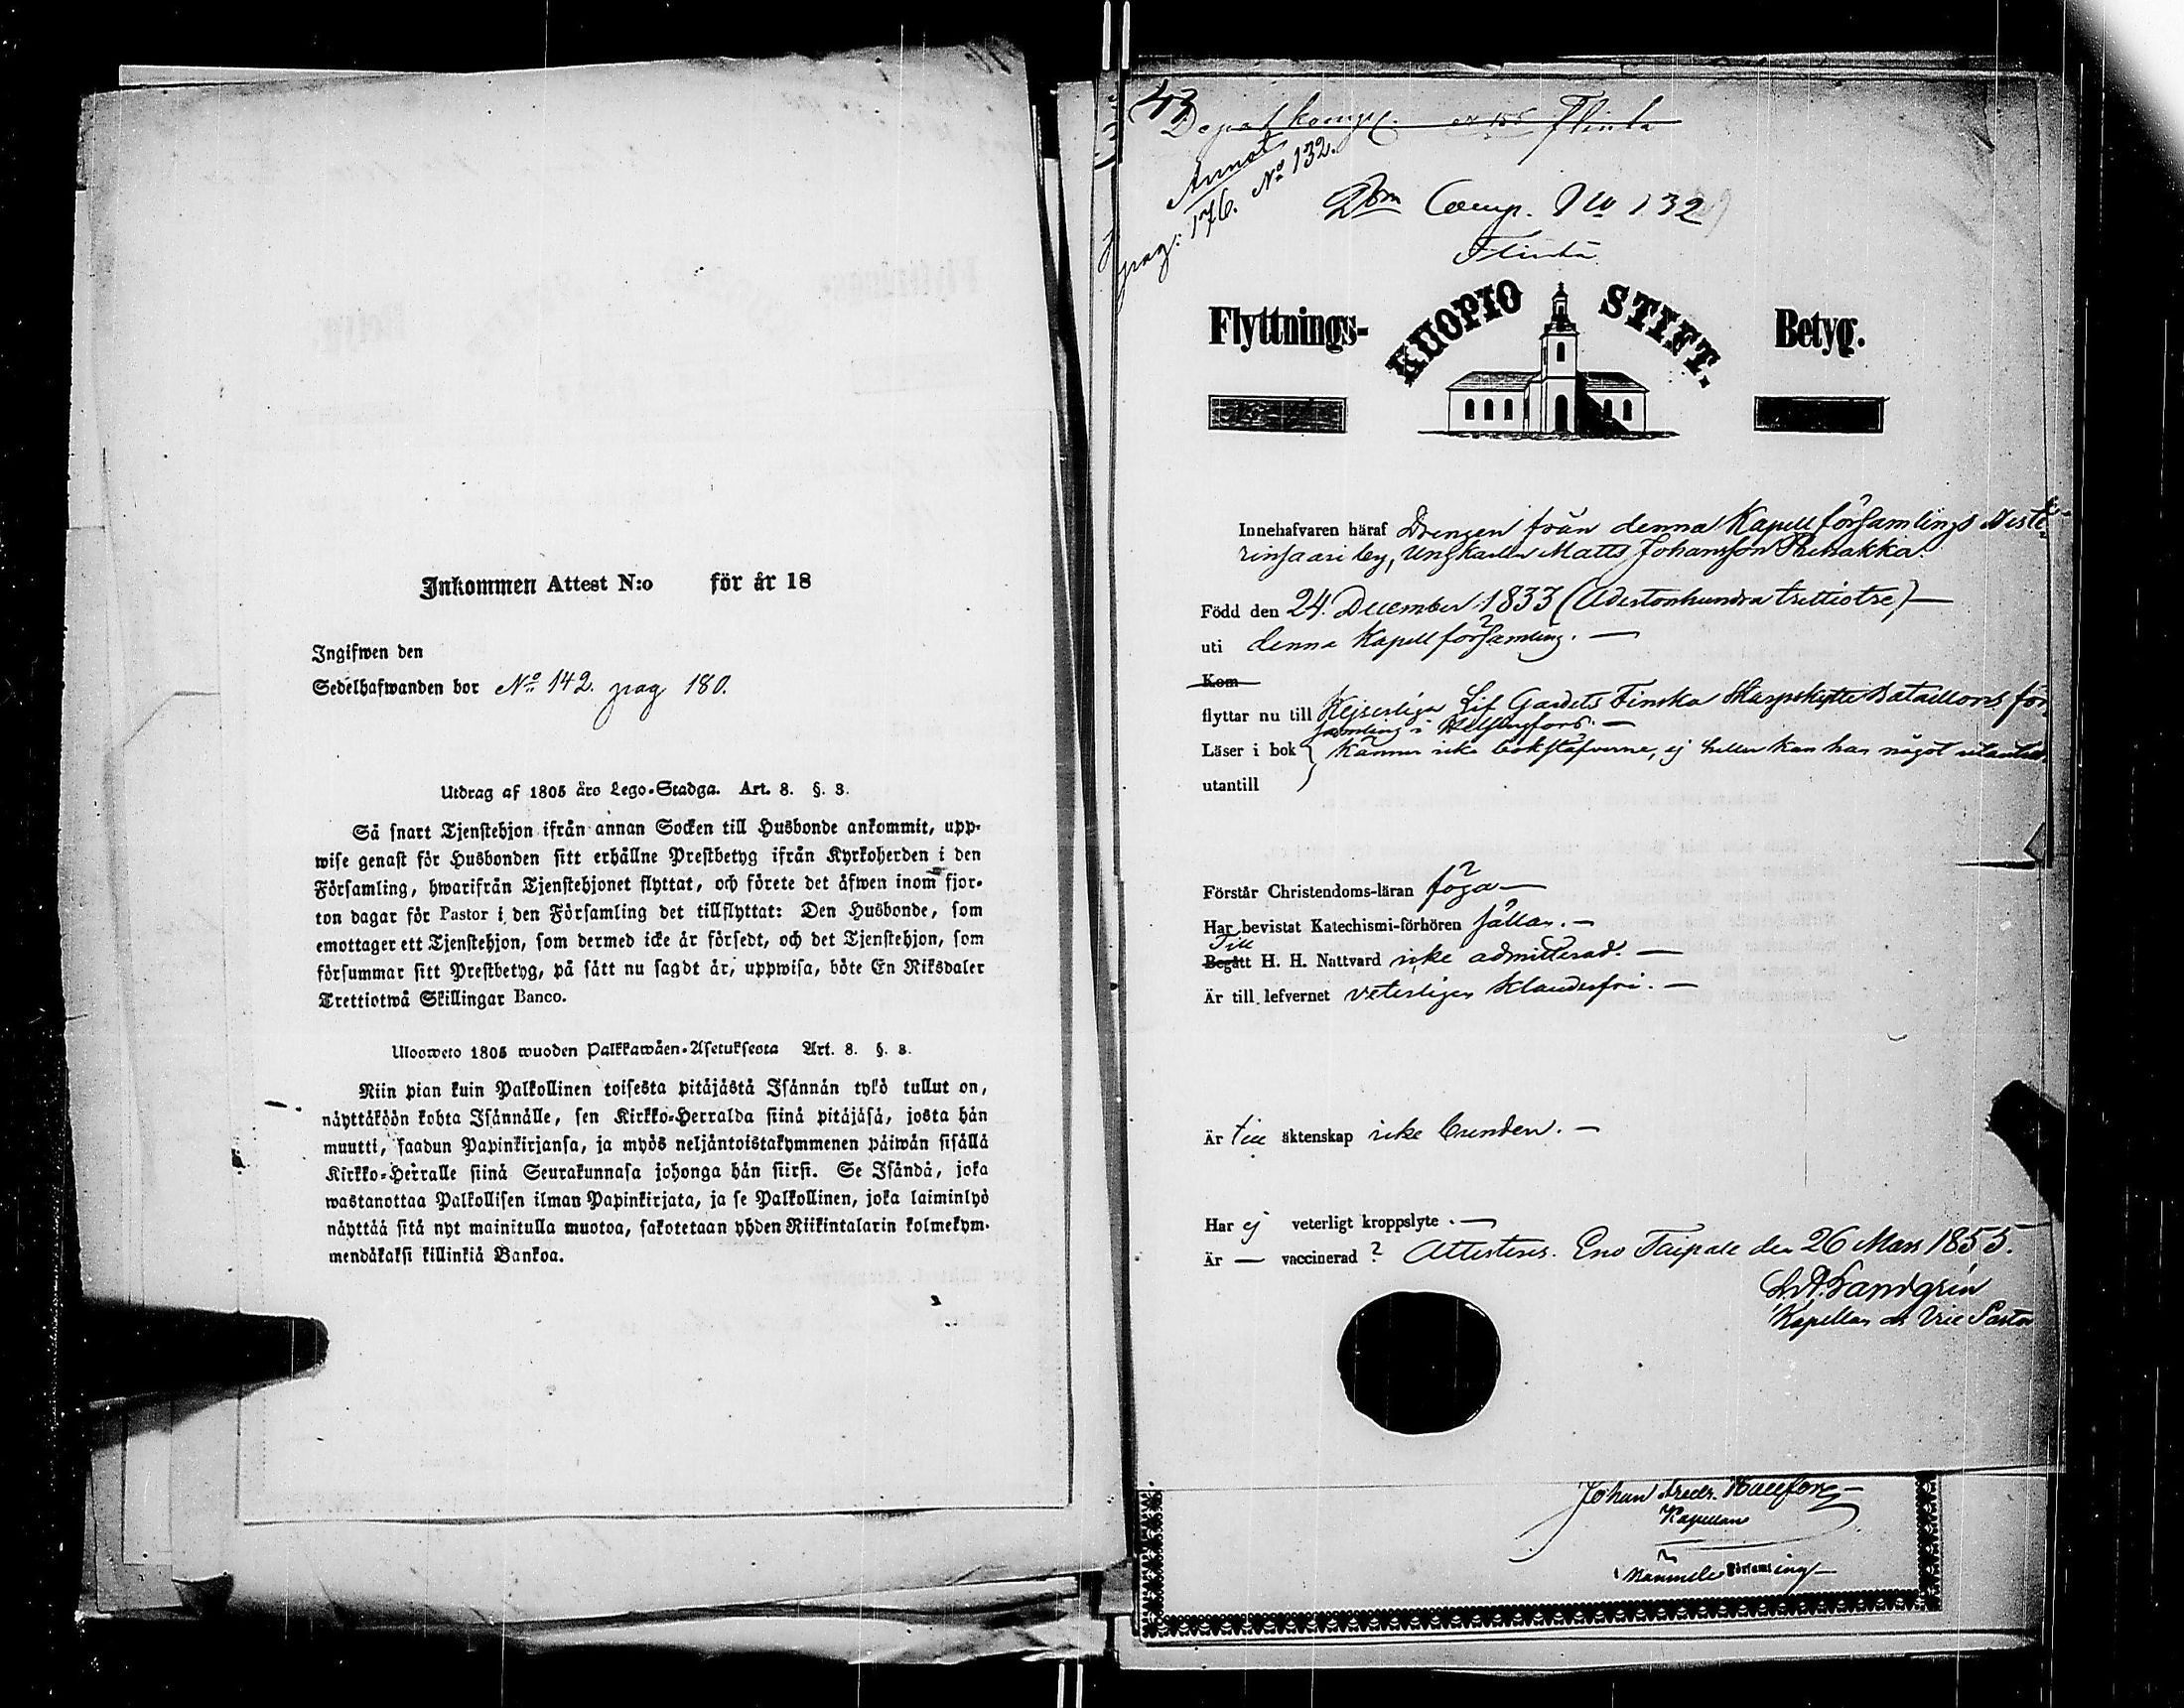 Inkommen Attest N:o för år 18
Ingifwen den
Sedelhafwanden bor No 142. pag 180.
Utdrag af 1805 års Lego-Stadga. Art. 8. §. 3.
Så snart Tjenstehjon ifrån annan Socken till Husbonde ankommit, upp-
wise genast för Husbonden sitt erhållne Prestbetyg ifrån Kyrkoherden i den
Församling, hwarifrån Tjenstehjonet flyttat, och förete det äfwen inom fjor-
ton dagar för Pastor i den Församling det tillflyttat: Den Husbonde, som
emottager ett Tjenstehjon, som dermed icke är försedt, och det Tjenstehjon, som
försummar sitt Prestbetyg, på sätt nu sagdt är, uppwisa, böte En Riksdaler
Trettiotwå Skillingar Banco.
Uloosweto 1805 wuoden Palkkawäen-Asetuksesta Art. 8. §. 3.
Niin pian kuin Palkollinen toisesta pitäjästä Isännän tykö tullut on,
näyttäköön kohta Isännälle, sen Kirkko-Herralda siinä pitäjäsä, josta hän
muutti, saadun Papinkirjansa, ja myös neljäntoistakymmenen päiwän sisällä
Kirkko-Herralle siinä Seurakunnasa johonga hän siirsi. Se Isändä, joka
wastanottaa Palkollisen ilman Papinkirjata, ja se Palkollinen, joka laiminlyö
näyttää sitä nyt mainitulla muotoa, sakotetaan yhden Riikintalarin kolmekym-
mendäkaksi killinkiä Bankoa.
43
Depot komp. No 155 Flinta
Annot
pag: 176. No 132.
2dra Comp. No 132
Flinta
Flyttnings- KUOPIO STIFT. Betyg.
Innehafvaren häraf Drengen från denna Kapellförsamlings
by, Ungkarlen Matts Johansson
Född den 24. December 1833 (Adertonhundra trettiotre) —
uti denna Kapellförsamling. —
Kom
flyttar nu till Kejserliga Lif Gardets Finska Skarpskytte Bataillons för
samling i Helsingfors. —
Läser i bok känner icke bokstäfverne, ej heller kan han något utantill
utantill
Förstår Christendoms-läran föga —
Har bevistat Katechismi-förhören sällan. —
Till
Begått H. H. Nattvard icke admitterad. —
Är till lefvernet veterligen klanderfri. —
Är till äktenskap icke bunden. —
Har ej veterligt kroppslyte. —
Är — vaccinerad ? Attesteras. Eno Taipale den 26 Mars 1855.
Kapellan och Vice Pastor
Johan Fredr.
Kapellan
i Församling